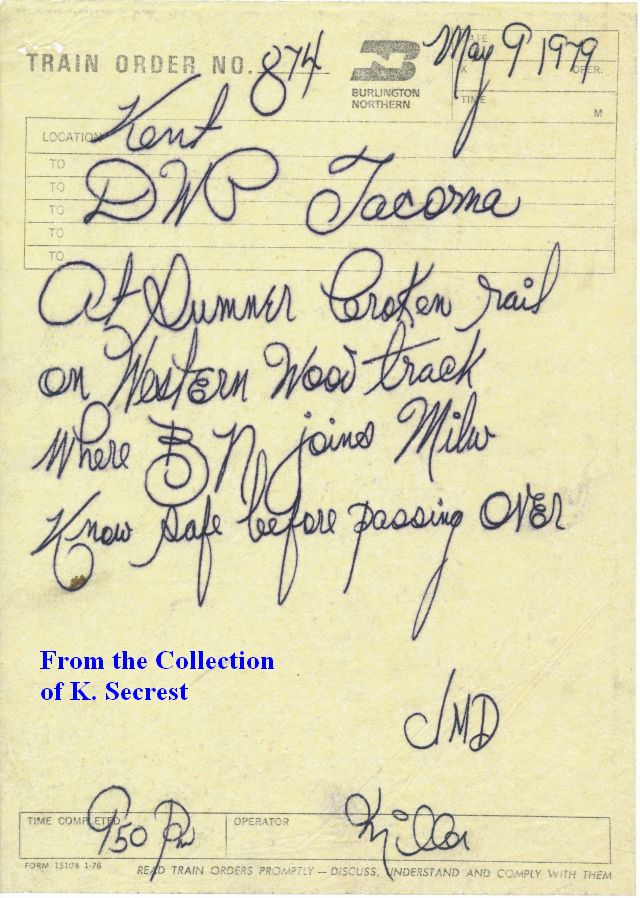 TRAIN ORDER NO. 874
BURLINGTON NORTHERN
DATE May 9 1979
OPER.
TIME
M
LOCATION Kent
TO
TO DWP Tacoma
TO
TO
TO
At Sumner broken rail
on Western Wood track
where BN joins Milw
Know safe before passing over
From the Collection
of K. Secrest
JMD
TIME COMPLETED 950 PM OPERATOR Miller
FORM 15108 1-76
READ TRAIN ORDERS PROMPTLY — DISCUSS, UNDERSTAND AND COMPLY WITH THEM